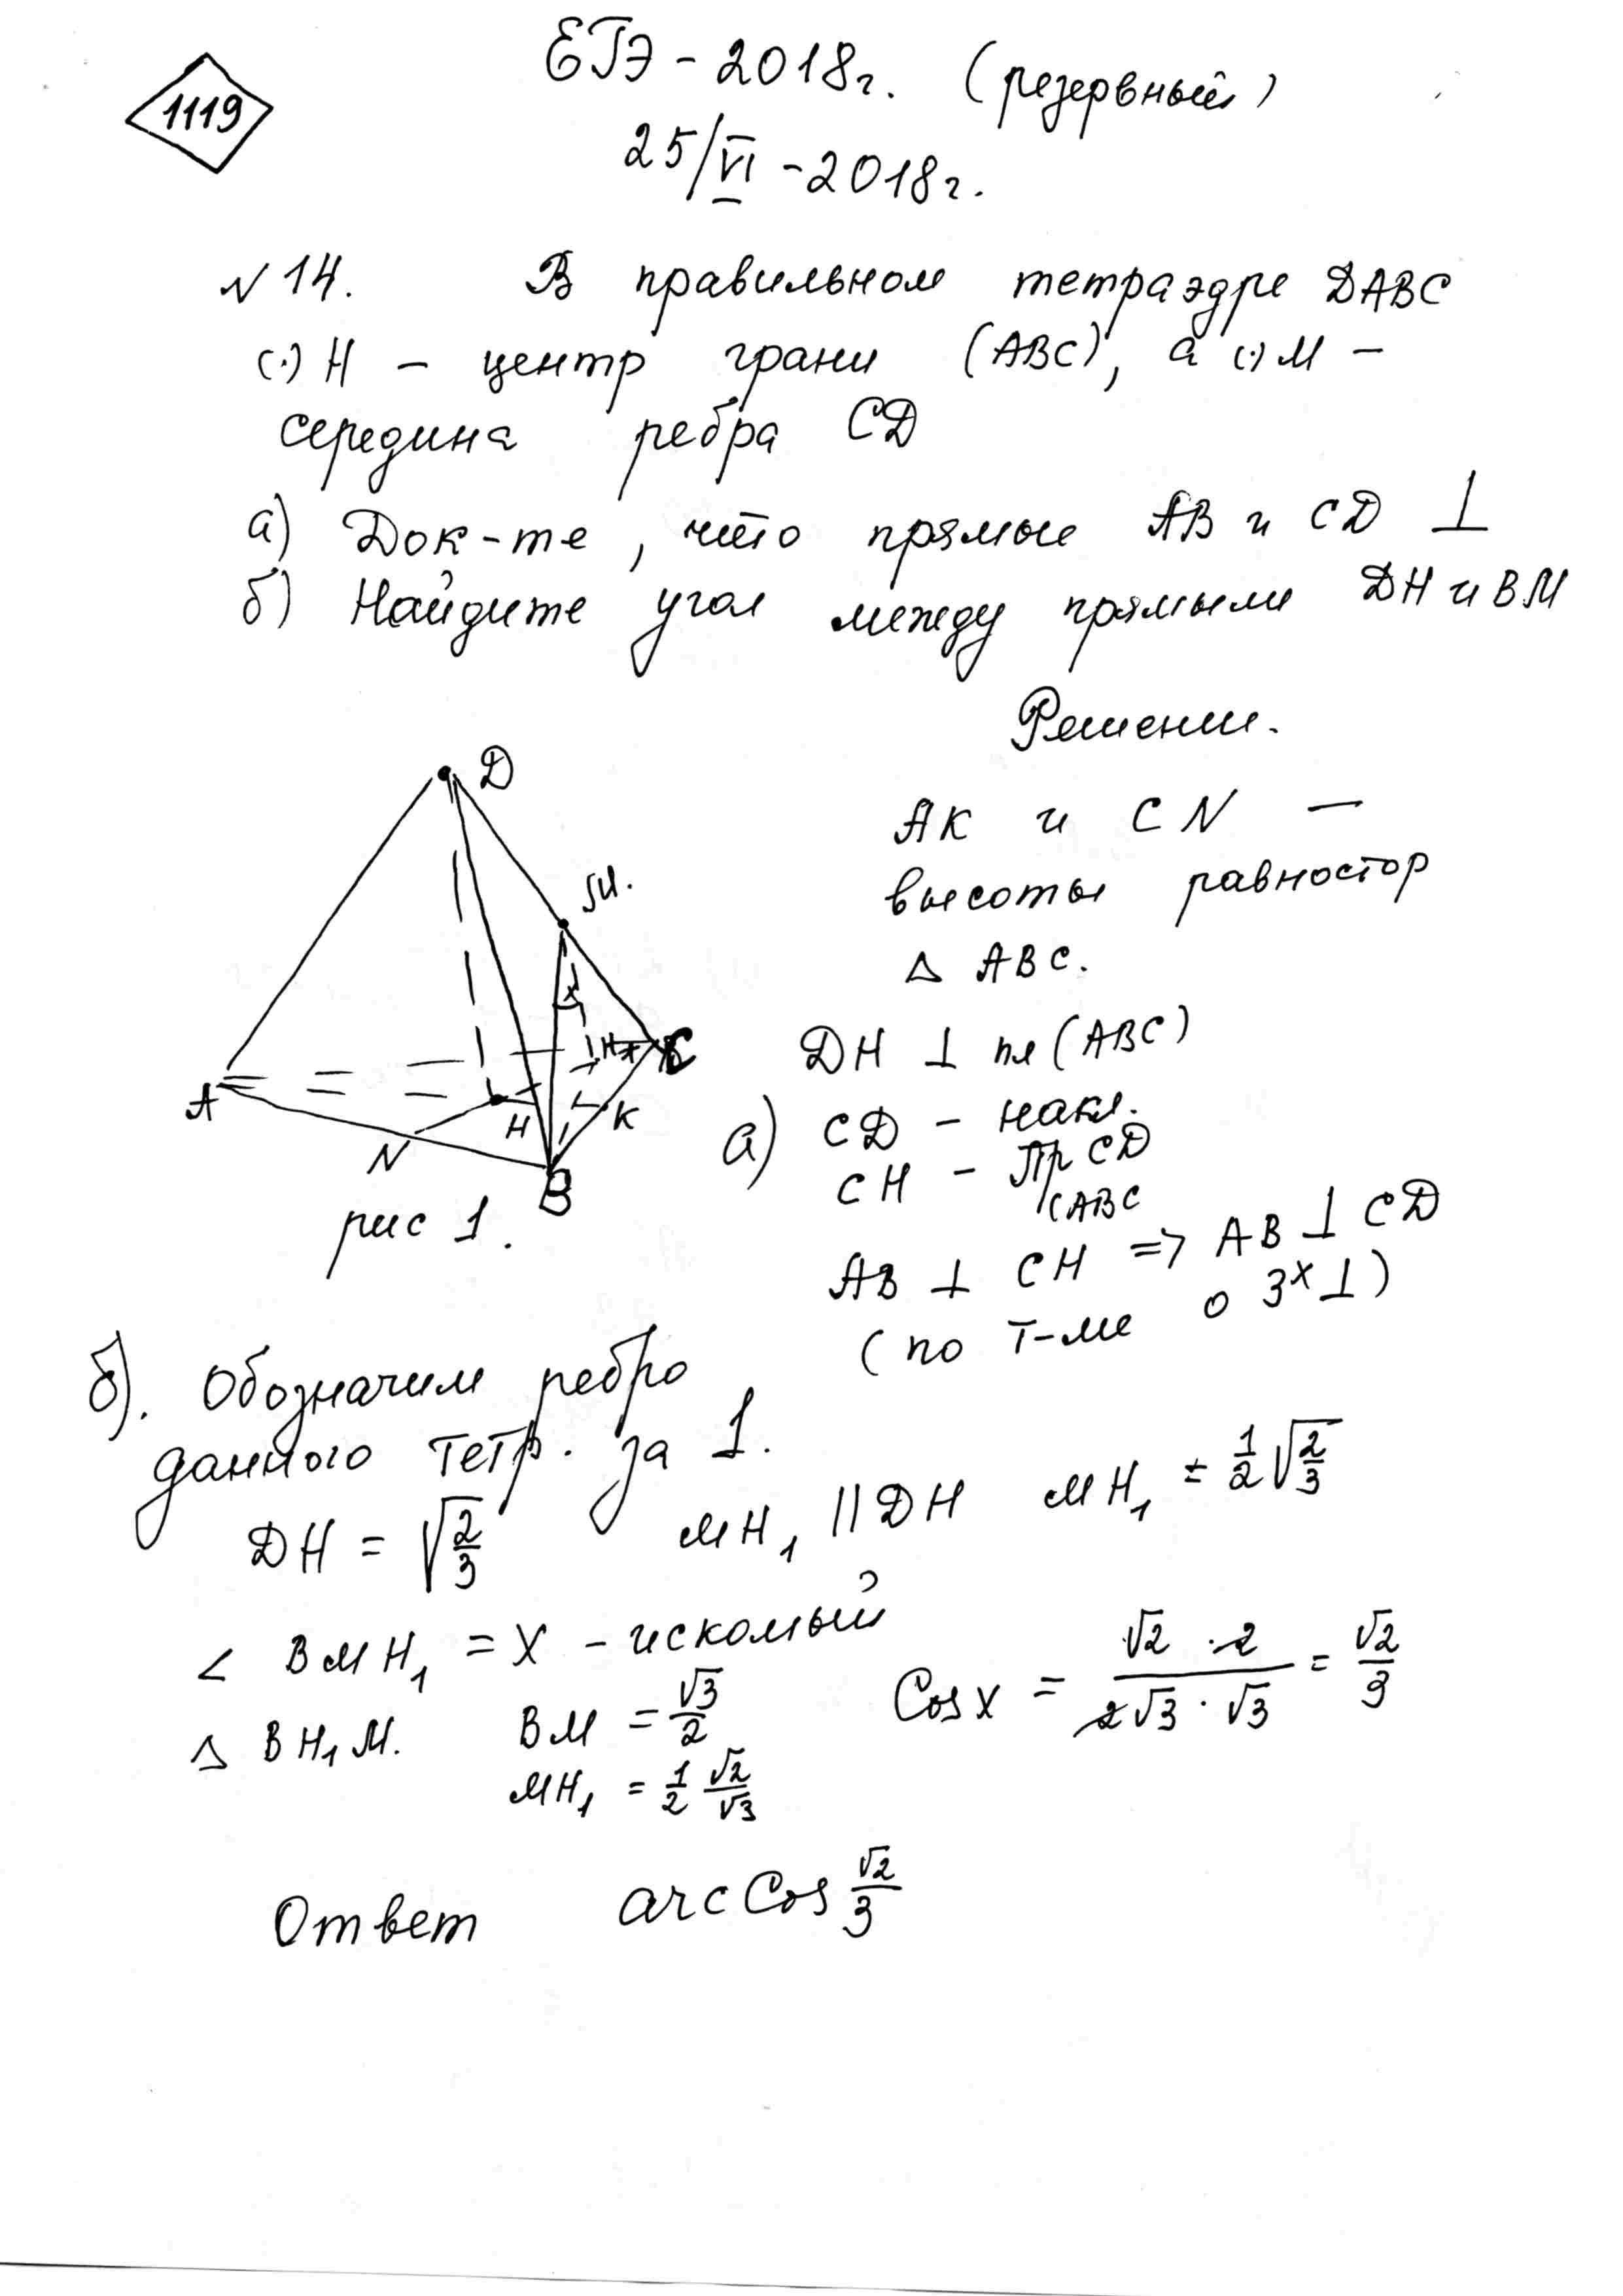 1119
ЕГЭ - 2018г. (резервный)
25/VI - 2018г.
N 14. В правильном тетраэдре DABC
(·) H - центр грани (ABC), а (·) M -
середина ребра CD
а) Док-те, что прямые AB и CD ⊥
б) Найдите угол между прямыми DH и BM
Решение.
AK и CN -
высоты равностор
△ ABC.
DH ⊥ пл (ABC)
а) CD - накл.
CH - Пр CD
(ABC
AB ⊥ CH => AB ⊥ CD
(по т-ме о 3х ⊥)
D
M.
x
H1
C
A
H
K
N
B
рис 1.
б). Обозначим ребро
данного тетр. за 1.
DH = √(2/3) MH1 || DH MH1 = 1/2 √(2/3)
∠ BMH1 = x - искомый
△ BH1M. BM = √3/2
MH1 = 1/2 √2/√3
Cos x = √2 · 2 / 2√3 · √3 = √2/3
Ответ arccos √2/3